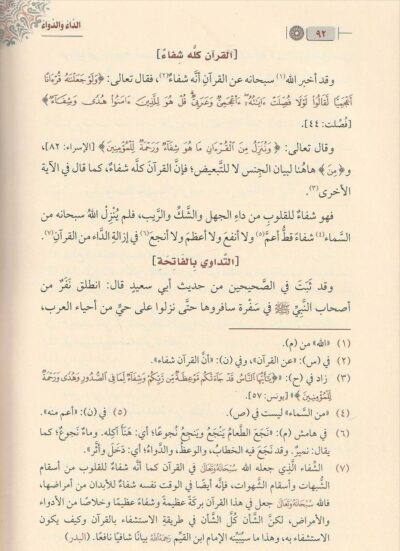 ٩٢
الداء والدواء
[القرآن كلُّه شفاء]
وقد أخبر الله(١) سبحانه عن القرآن أنَّه شفاءٌ(٢)، فقال تعالى: ﴿وَلَوْ جَعَلْنَٰهُ قُرْءَانًا
أَعْجَمِيًّا لَّقَالُوا۟ لَوْلَا فُصِّلَتْ ءَايَٰتُهُۥٓ ءَا۬عْجَمِىٌّ وَعَرَبِىٌّ قُلْ هُوَ لِلَّذِينَ ءَامَنُوا۟ هُدًى وَشِفَآءٌ﴾
[فُصِّلت: ٤٤].
وقال تعالى: ﴿وَنُنَزِّلُ مِنَ ٱلْقُرْءَانِ مَا هُوَ شِفَآءٌ وَرَحْمَةٌ لِّلْمُؤْمِنِينَ﴾ [الإسراء: ٨٢]،
و﴿مِنَ﴾ هاهُنا لبيان الجِنس لا للتَّبعيض؛ فإنَّ القرآنَ كلَّه شفاءٌ، كما قال في الآية
الأخرى(٣).
فهو شفاءٌ للقلوبِ من داءِ الجهل والشَّكِّ والرَّيب، فلم يُنْزِلِ اللهُ سبحانه من
السَّماء(٤) شفاءً قطُّ أعمَّ(٥) ولا أنفعَ ولا أعظمَ ولا أنجعَ(٦) في إزالةِ الدَّاء من القرآنِ(٧).
[التَّداوي بالفاتحة]
وقد ثَبَتَ في الصَّحيحين من حديث أبي سعيدٍ قال: انطلق نَفَرٌ من
أصحاب النَّبيِّ ﷺ في سَفْرة سافروها حتَّى نزلوا على حيٍّ من أحياء العرب،
(١) «الله» من (م).
(٢) في (س): «عن القرآن»، وفي (ن): «أنَّ القرآن شفاء».
(٣) زاد في (ح): «﴿يَٰٓأَيُّهَا ٱلنَّاسُ قَدْ جَآءَتْكُم مَّوْعِظَةٌ مِّن رَّبِّكُمْ وَشِفَآءٌ لِّمَا فِى ٱلصُّدُورِ وَهُدًى وَرَحْمَةٌ
لِّلْمُؤْمِنِينَ﴾» [يونس: ٥٧].
(٤) «من السَّماء» ليست في (ص). (٥) في (ن): «أعم منه».
(٦) في هامش (م): «نَجَعَ الطَّعامُ يَنْجَعُ ويَنجِعُ نُجوعًا؛ أي: هَنَأَ آكِلَه. وماءٌ نَجُوعٌ؛ كما
يقال: نميرٌ. وقد نَجَع فيه الخطابُ، والوعظُ، والدَّواءُ؛ أي: دَخَلَ وأثَّر».
(٧) الشِّفاء الَّذي جعله الله سُبْحَانَهُ وَتَعَالَىٰ في القرآن كما أنَّه شفاءٌ للقلوب من أسقام
الشُّبهات وأسقام الشَّهوات، فإنَّه أيضًا في الوقت نفسه شفاءٌ للأبدان من أمراضها،
فالله سُبْحَانَهُ وَتَعَالَىٰ جعل في هذا القرآن بركةً عظيمةً وشفاءً عظيمًا وخلاصًا من الأدواء
والأمراض، لكنَّ الشَّأن كُلَّ الشَّأن في طريقةِ الاستشفاء بالقرآن وكيف يكون
الاستشفاء به، وهذا ما سيُبَيِّنه الإمام ابن القيِّم رَحِمَهُ اللهُ بيانًا شافيًا نافعًا. (البدر)